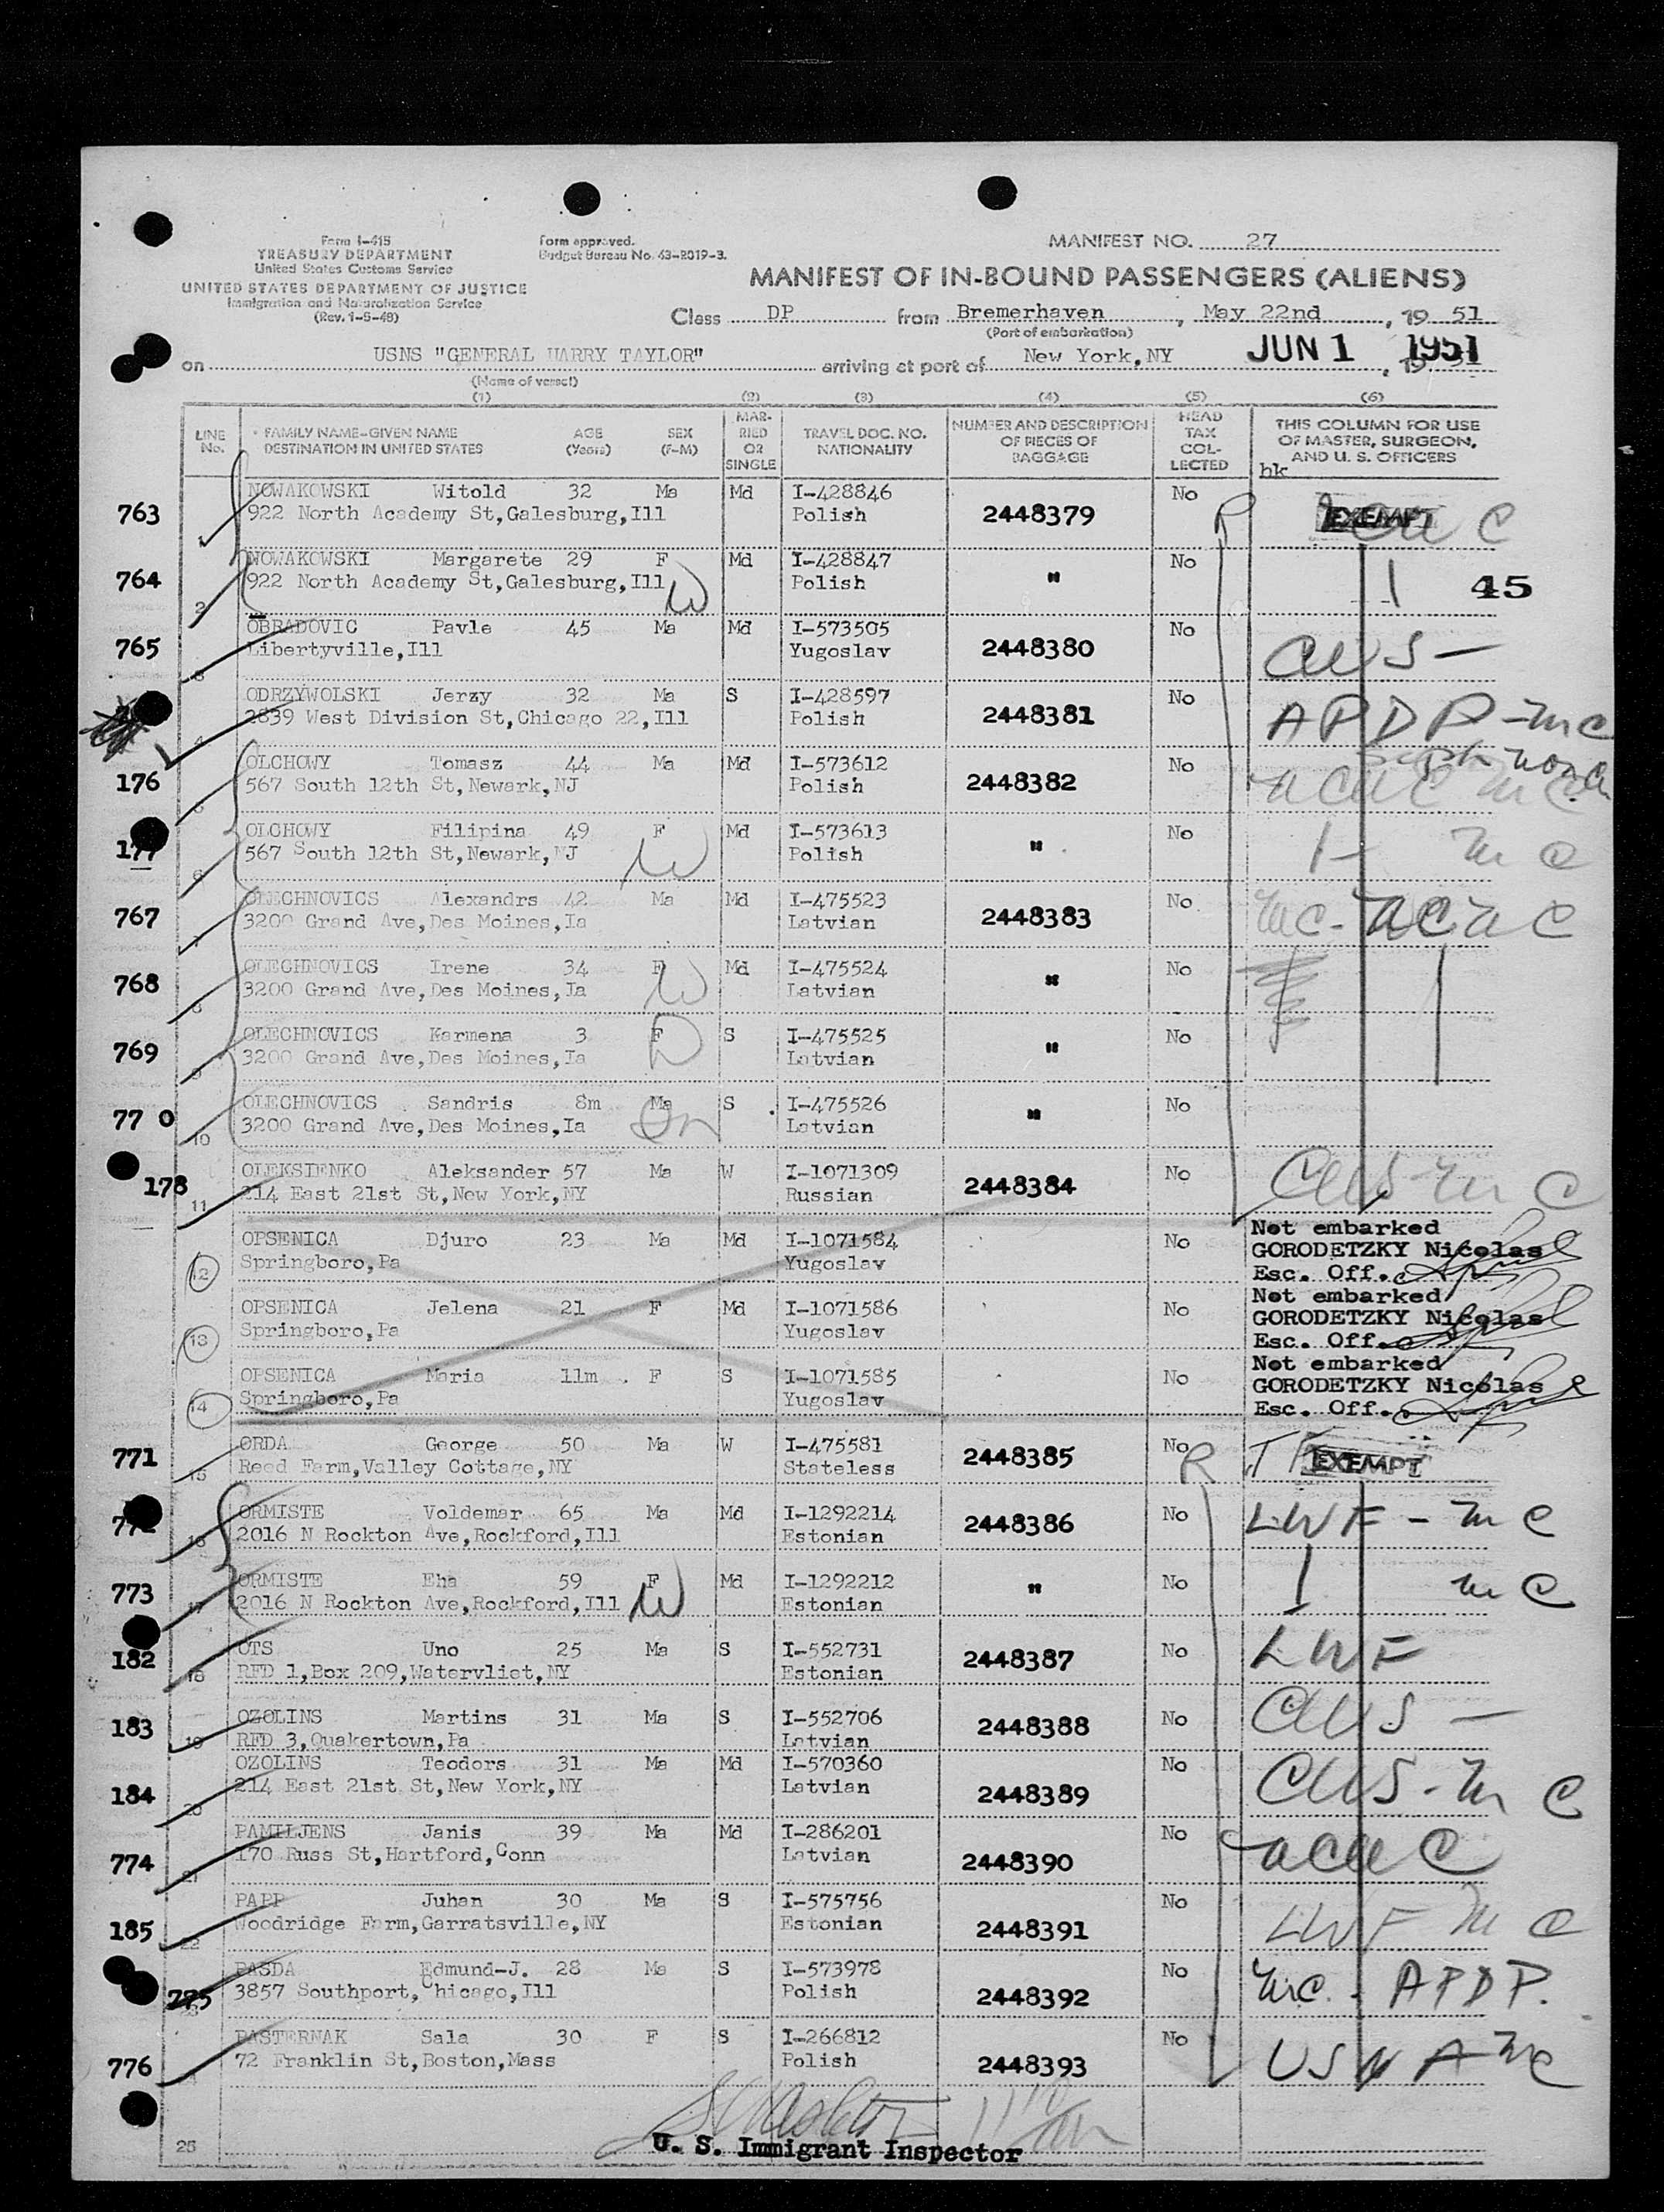 Form I-415
TREASURY DEPARTMENT
United States Customs Service
UNITED STATES DEPARTMENT OF JUSTICE
Immigration and Naturalization Service
(Rev. 1-5-48)
Form approved.
Budget Bureau No. 43-R019-3.
MANIFEST NO. 27
MANIFEST OF IN-BOUND PASSENGERS (ALIENS)
Class DP from Bremerhaven, May 22nd, 19 51
(Port of embarkation)
on USNS "GENERAL HARRY TAYLOR" arriving at port of New York, NY JUN 1 1951
(Name of vessel)
(1) (2) (3) (4) (5) (6)
LINE No. FAMILY NAME-GIVEN NAME DESTINATION IN UNITED STATES AGE (Years) SEX (F-M) MARRIED OR SINGLE TRAVEL DOC. NO. NATIONALITY NUMBER AND DESCRIPTION OF PIECES OF BAGGAGE HEAD TAX COLLECTED THIS COLUMN FOR USE OF MASTER, SURGEON, AND U. S. OFFICERS
hk
NOWAKOWSKI Witold 32 Ma Md I-428846 No
763 922 North Academy St, Galesburg, Ill Polish 2448379 R EXEMPT
NOWAKOWSKI Margarete 29 F Md I-428847 No
764 922 North Academy St, Galesburg, Ill W Polish " 45
2
OBRADOVIC Pavle 45 Ma Md I-573505 No
765 Libertyville, Ill Yugoslav 2448380 CWS -
3
ODRZYWOLSKI Jerzy 32 Ma S I-428597 No
2839 West Division St, Chicago 22, Ill Polish 2448381 APDP - mc
4
OLCHOWY Tomasz 44 Ma Md I-573612 No
176 567 South 12th St, Newark, NJ Polish 2448382
5
OLCHOWY Filipina 49 F Md I-573613 No
177 567 South 12th St, Newark, NJ W Polish " mc
6
OLECHNOVICS Alexandrs 42 Ma Md I-475523 No
767 3200 Grand Ave, Des Moines, Ia Latvian 2448383
7
OLECHNOVICS Irene 34 F Md I-475524 No
768 3200 Grand Ave, Des Moines, Ia W Latvian "
8
OLECHNOVICS Karmena 3 F S I-475525 No
769 3200 Grand Ave, Des Moines, Ia D Latvian "
9
OLECHNOVICS Sandris 8m Ma S I-475526 No
77 0 3200 Grand Ave, Des Moines, Ia Latvian "
10
OLEKSIENKO Aleksander 57 Ma W I-1071309 No
178 214 East 21st St, New York, NY Russian 2448384 CWS - mc
11
OPSENICA Djuro 23 Ma Md I-1071584 No Not embarked
12 Springboro, Pa Yugoslav GORODETZKY Nicolas
Esc. Off.
OPSENICA Jelena 21 F Md I-1071586 No Not embarked
13 Springboro, Pa Yugoslav GORODETZKY Nicolas
Esc. Off.
OPSENICA Maria 11m F S I-1071585 No Not embarked
14 Springboro, Pa Yugoslav GORODETZKY Nicolas
Esc. Off.
ORDA George 50 Ma W I-475581 No
771 15 Reed Farm, Valley Cottage, NY Stateless 2448385 R EXEMPT
ORMISTE Voldemar 65 Ma Md I-1292214 No
772 16 2016 N Rockton Ave, Rockford, Ill Estonian 2448386 LWF - mc
ORMISTE Eha 59 F Md I-1292212 No
773 17 2016 N Rockton Ave, Rockford, Ill W Estonian " mc
OTS Uno 25 Ma S I-552731 No
182 18 RFD 1, Box 209, Watervliet, NY Estonian 2448387 LWF
OZOLINS Martins 31 Ma S I-552706 No
183 19 RFD 3, Quakertown, Pa Latvian 2448388 CWS -
OZOLINS Teodors 31 Ma Md I-570360 No
184 20 214 East 21st St, New York, NY Latvian 2448389 CWS - mc
PAMILJENS Janis 39 Ma Md I-286201 No
774 21 170 Russ St, Hartford, Conn Latvian 2448390
PAPP Juhan 30 Ma S I-575756 No
185 22 Woodridge Farm, Garratsville, NY Estonian 2448391 LWF mc
PASDA Edmund-J. 28 Ma S I-573978 No
775 23 3857 Southport, Chicago, Ill Polish 2448392 mc. APDP.
PASTERNAK Sala 30 F S I-266812 No
776 72 Franklin St, Boston, Mass Polish 2448393 USNA mc
25 U. S. Immigrant Inspector